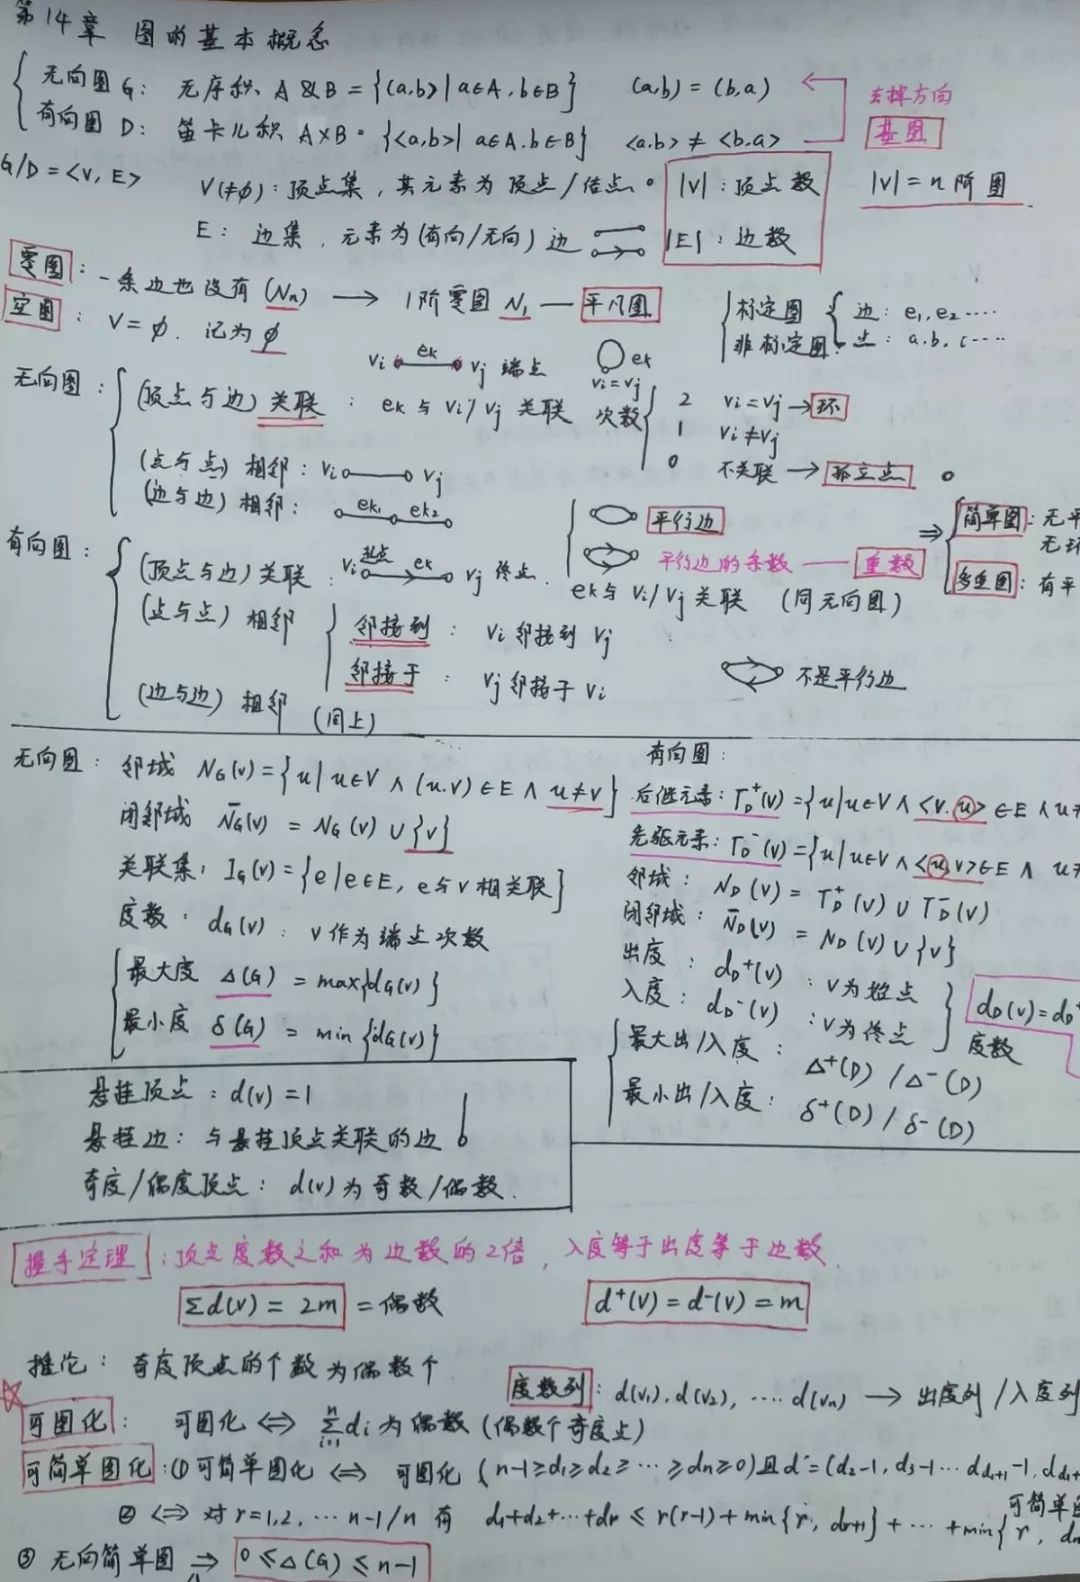 第14章 图的基本概念
无向图 G: 无序积 A&B={(a,b)|a∈A,b∈B} (a,b)=(b,a) 去掉方向
有向图 D: 笛卡儿积 A×B={<a,b>|a∈A,b∈B} <a,b>≠<b,a> 基图
G/D=<V,E> V(≠φ):顶点集,其元素为顶点/结点。 |V|:顶点数 |V|=n阶图
E: 边集,元素为(有向/无向)边 |E|:边数
零图:一条边也没有(Nn) → 1阶零图 N1 — 平凡图
空图: V=φ. 记为φ
标定图 边: e1,e2……
非标定图 点: a,b,c……
vi ek vj 端点 ek vi=vj
无向图: (顶点与边)关联: ek与vi/vj关联 次数 2 vi=vj→环
1 vi≠vj
0 不关联→孤立点
(点与点)相邻: vi vj
(边与边)相邻: ek1 ek2
平行边
平行边的条数 — 重数
⇒ 简单图:无平
无环
多重图:有平
有向图: (顶点与边)关联: vi 起点 ek vj 终点. ek与vi/vj关联 (同无向图)
(点与点)相邻 邻接到: vi邻接到vj
邻接于: vj邻接于vi
不是平行边
(边与边)相邻 (同上)
无向图: 邻域 NG(v)={u|u∈V∧(u,v)∈E∧u≠v}
闭邻域 N̄G(v)=NG(v)∪{v}
关联集: IG(v)={e|e∈E,e与v相关联}
度数: dG(v): v作为端点次数
最大度 Δ(G)=max{dG(v)}
最小度 δ(G)=min{dG(v)}
有向图:
后继元素: ΓD⁺(v)={u|u∈V∧<v,u>∈E∧u≠
先驱元素: ΓD⁻(v)={u|u∈V∧<u,v>∈E∧u≠
邻域: ND(v)=ΓD⁺(v)∪ΓD⁻(v)
闭邻域: N̄D(v)=ND(v)∪{v}
出度: dD⁺(v): v为始点
入度: dD⁻(v): v为终点
dD(v)=dD⁺
度数
最大出/入度: Δ⁺(D)/Δ⁻(D)
最小出/入度: δ⁺(D)/δ⁻(D)
悬挂顶点: d(v)=1
悬挂边: 与悬挂顶点关联的边
奇度/偶度顶点: d(v)为奇数/偶数.
握手定理:顶点度数之和为边数的2倍, 入度等于出度等于边数.
Σd(v)=2m=偶数 d⁺(v)=d⁻(v)=m
推论: 奇度顶点的个数为偶数个
度数列: d(v1),d(v2),……d(vn) → 出度列/入度列
可图化: 可图化 ⇔ Σⁿᵢ₌₁di为偶数(偶数个奇度点)
可简单图化:①可简单图化 ⇔ 可图化 (n-1≥d1≥d2≥…≥dn≥0)且d'=(d2-1,d3-1…dd1+1-1,dd1+
可简单图
② ⇔ 对r=1,2,…n-1/n 有 d1+d2+…+dr≤r(r-1)+min{r,dr+1}+…+min{r,dn
③ 无向简单图 ⇒ 0≤Δ(G)≤n-1